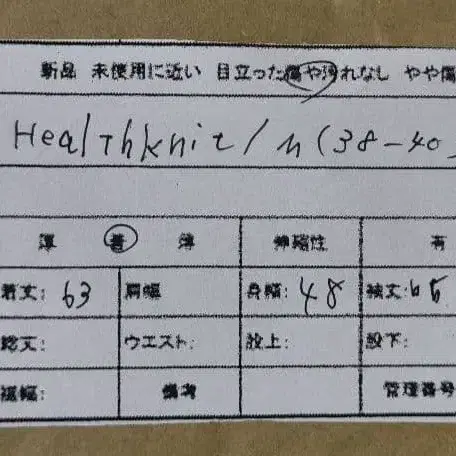 新品 未使用に近い 目立った傷や汚れなし やや傷
Healthknit/M(38-40
厚 普 薄 伸縮性 有
着丈:63 肩幅 身幅:48 袖丈:65
総丈: ウエスト: 股上: 股下:
裾幅: 備考 管理番号